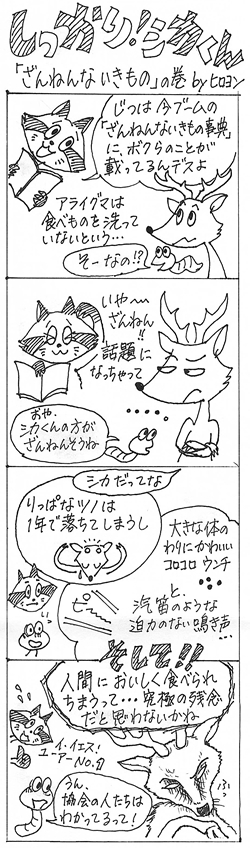 しっかり!シカくん
「ざんねんないきもの」の巻 byヒロヨン
じつは今ブームの
「ざんねんないきもの事典」
に、ボクらのことが
載ってるんデスよ
アライグマは
食べものを洗って
いないという…
そーなの!?
いや〜
ざんねん!!
話題に
なっちゃって
おや、
シカくんの方が
ざんねんそうね
シカだってな
りっぱなツノは
1年で落ちてしまうし
大きな体の
わりにかわいい
コロコロウンチ
と、
汽笛のような
迫力のない鳴き声…
ピー
そして!!
人間においしく食べられ
ちまうって…究極の残念
だと思わないかね
ユー・イエス!
ユーアーNO.1
うん、
協会の人たちは
わかってるって!
ふっ